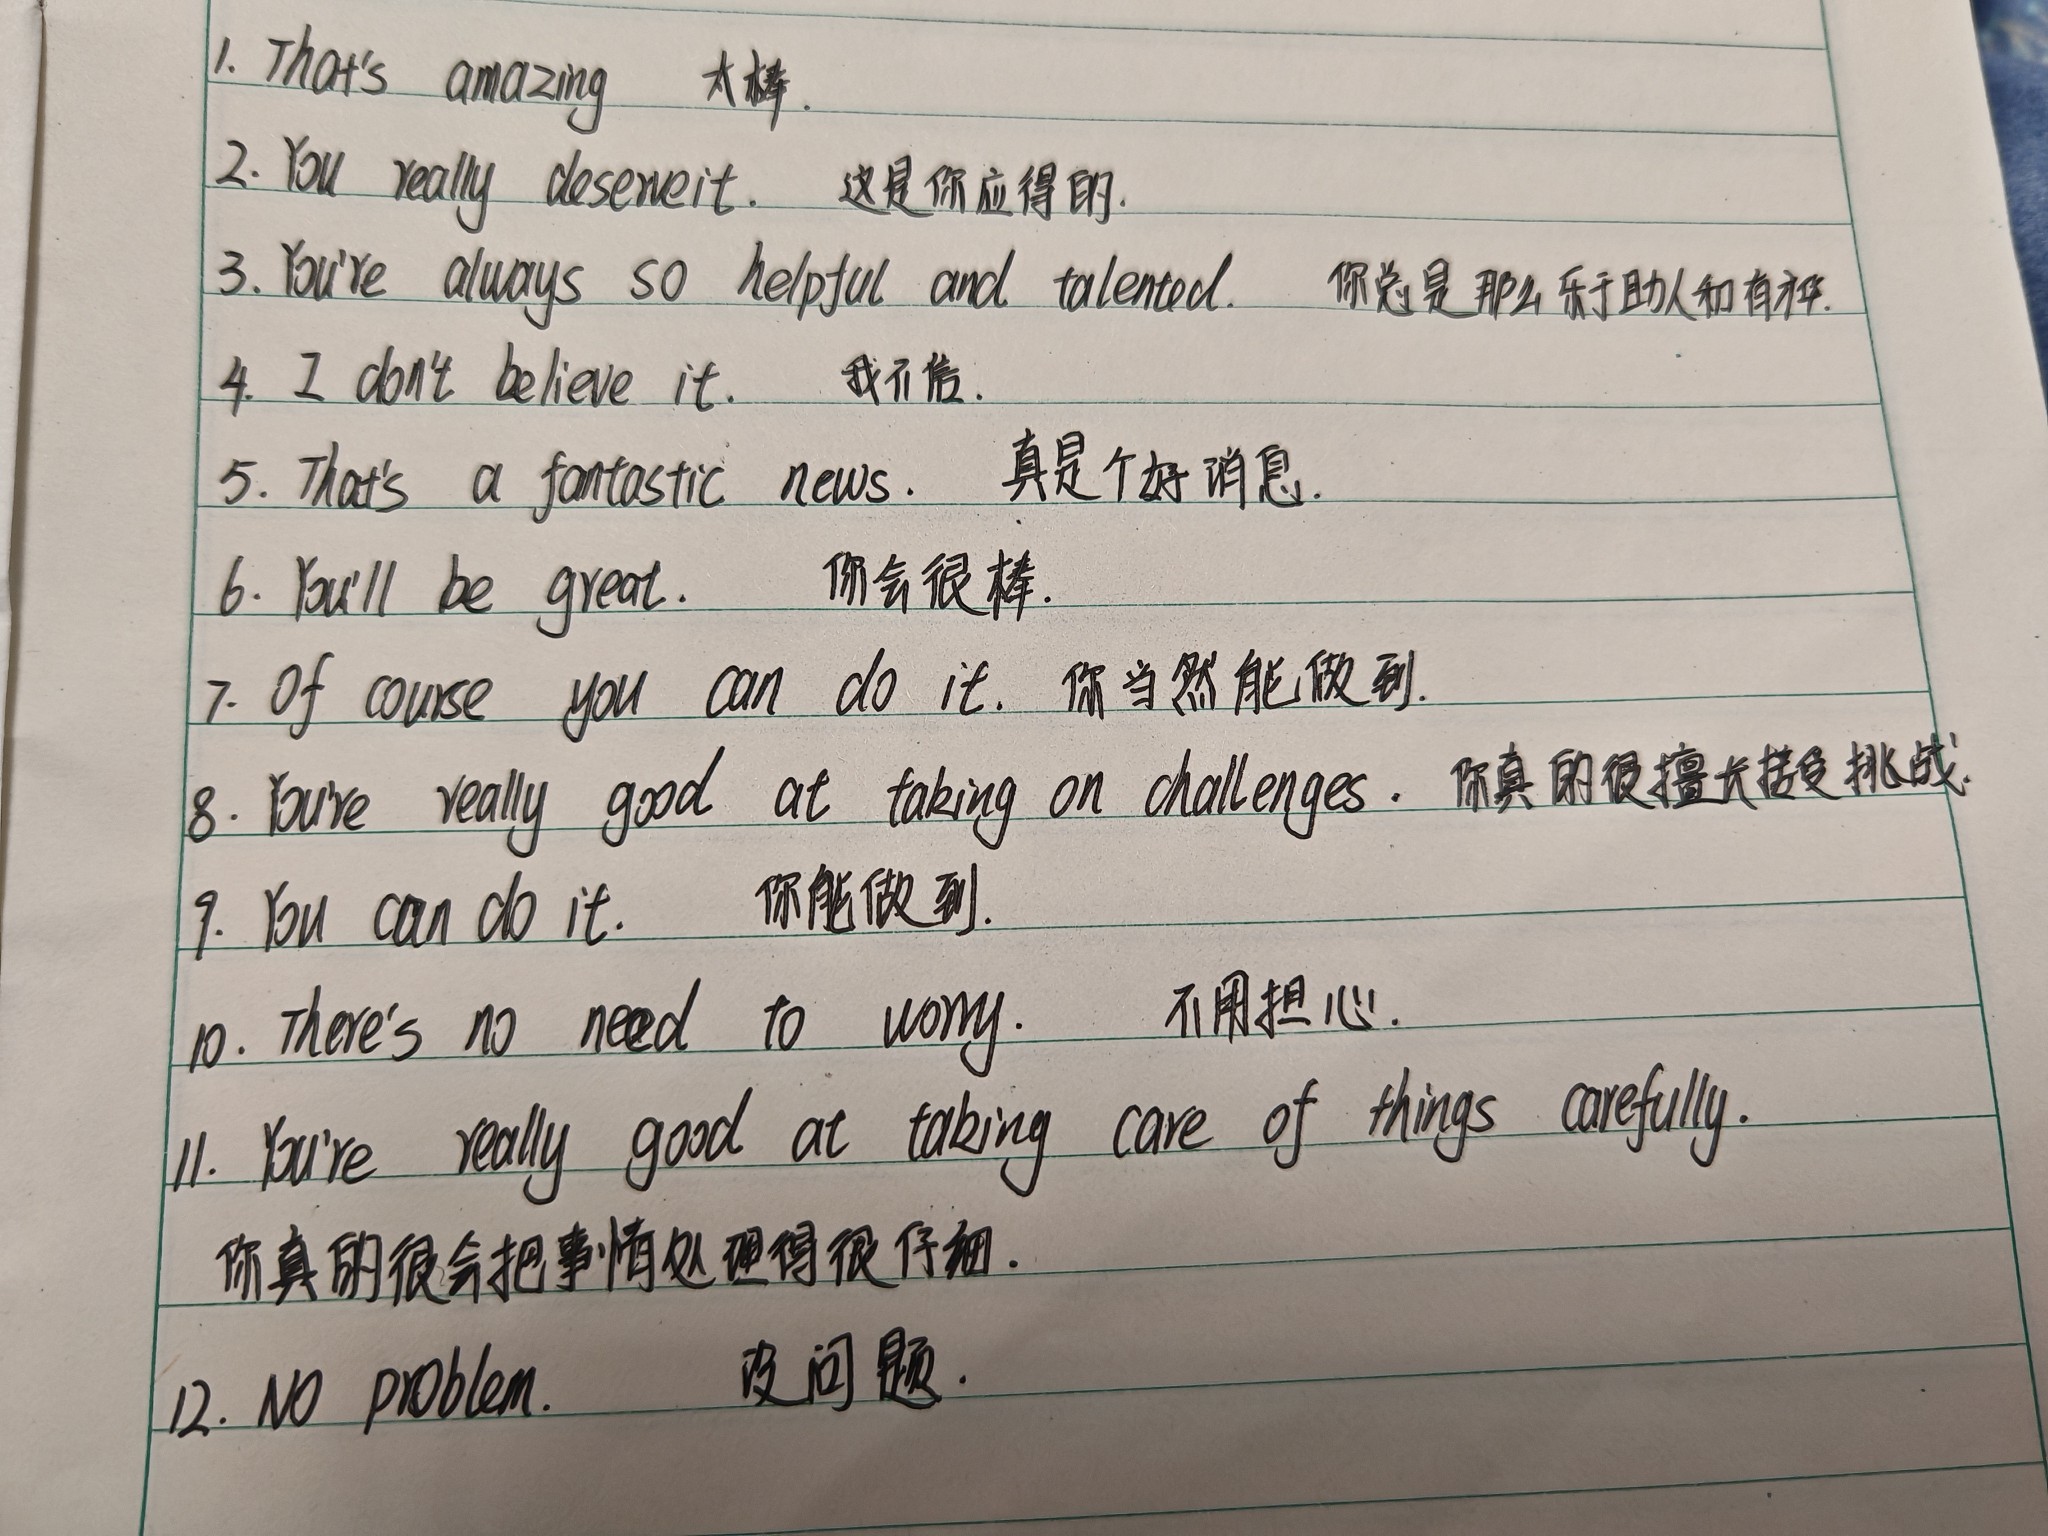 1. That's amazing 太棒.
2. You really deserveit. 这是你应得的.
3. You're always so helpful and talented. 你总是那么乐于助人和有才华.
4. I don't believe it. 我不信.
5. That's a fantastic news. 真是个好消息.
6. You'll be great. 你会很棒.
7. Of course you can do it. 你当然能做到.
8. You're really good at taking on challenges. 你真的很擅长接受挑战.
9. You can do it. 你能做到.
10. There's no need to worry. 不用担心.
11. You're really good at taking care of things carefully.
你真的很会把事情处理得很仔细.
12. NO problem. 没问题.